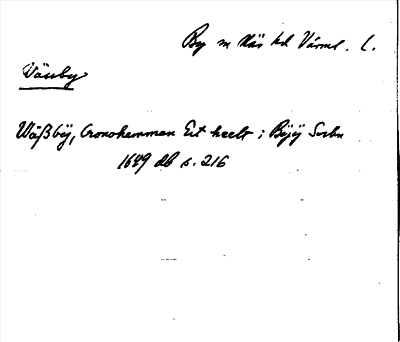 By m Näs hd Värml. l.
Väsby
Wäßbÿ, Cronohemman Ett heelt i Bÿÿ Sochn
1649 db s. 216